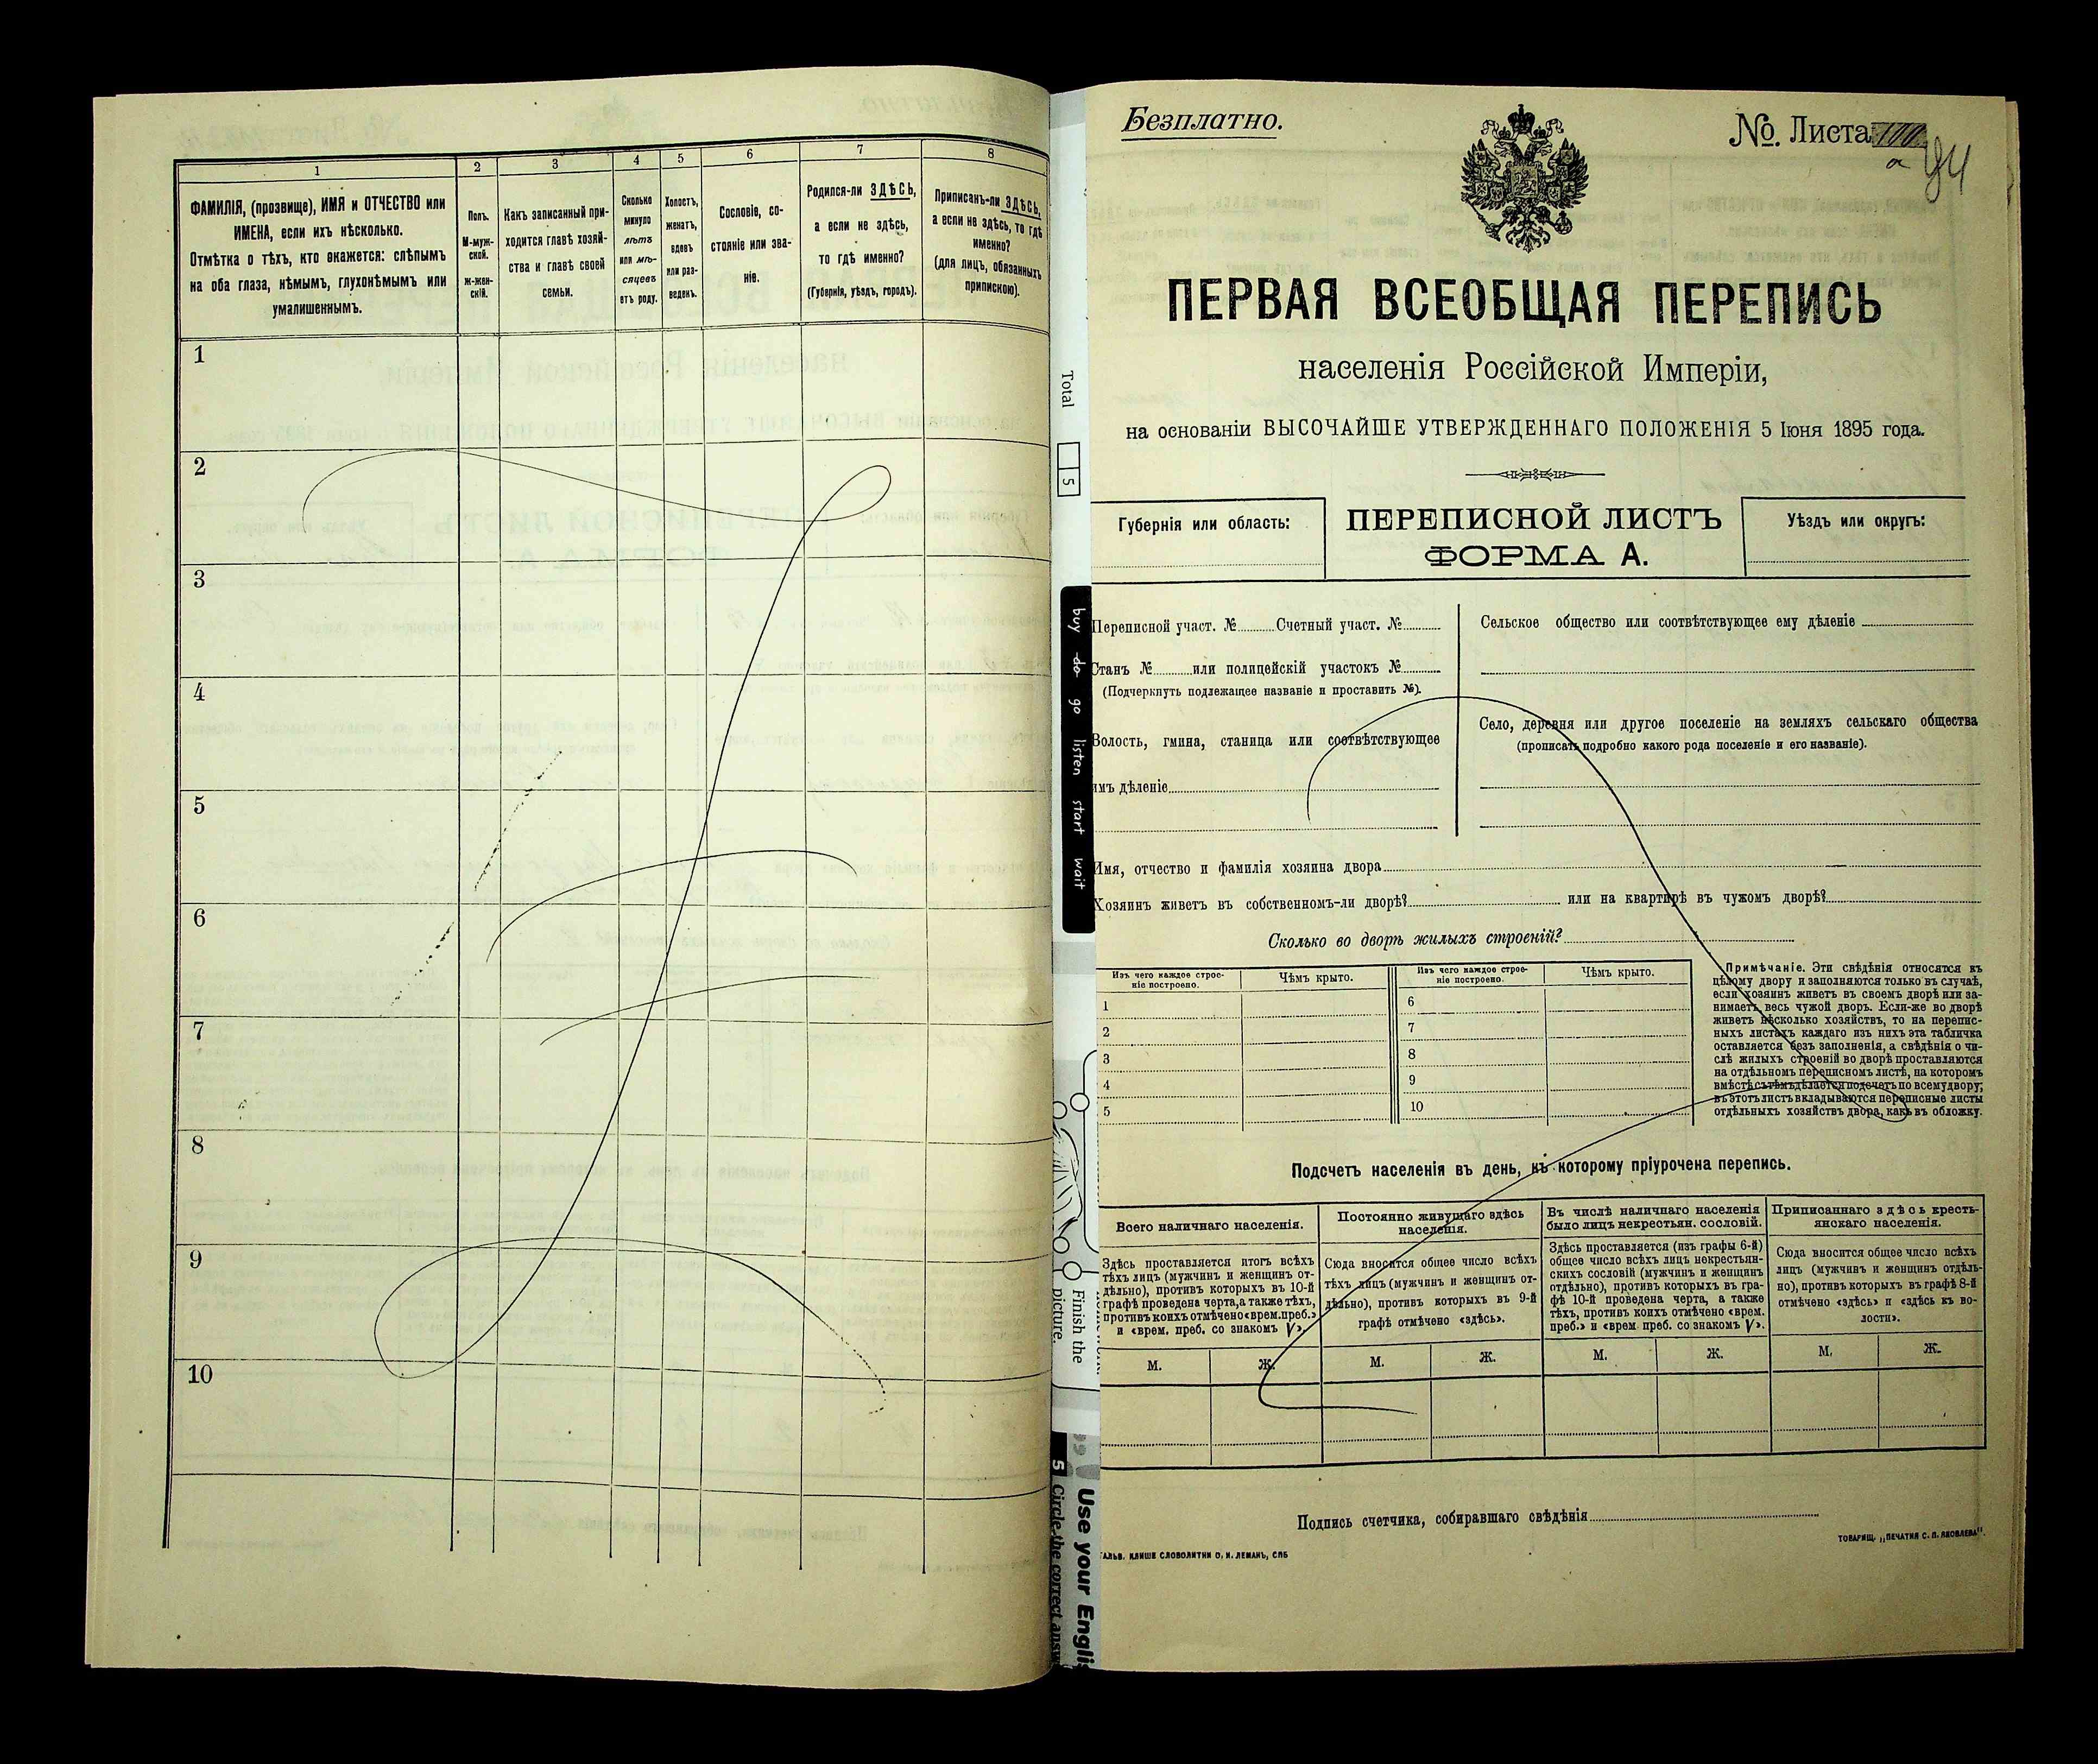 1 2 3 4 5 6 7 8
ФАМИЛІЯ, (прозвище), ИМЯ и ОТЧЕСТВО или
ИМЕНА, если ихъ нѣсколько.
Отмѣтка о тѣхъ, кто окажется: слѣпымъ
на оба глаза, нѣмымъ, глухонѣмымъ или
умалишеннымъ.
Полъ.
М-муж-
ской.
ж-жен-
скій.
Какъ записанный при-
ходится главѣ хозяй-
ства и главѣ своей
семьи.
Сколько
минуло
лѣтъ
или мѣ-
сяцевъ
отъ роду.
Холостъ,
женатъ,
вдовъ
или раз-
веденъ.
Сословіе, со-
стояніе или зва-
ніе.
Родился-ли ЗДѢСЬ,
а если не здѣсь,
то гдѣ именно?
(Губернія, уѣздъ, городъ).
Приписанъ-ли ЗДѢСЬ,
а если не здѣсь, то гдѣ
именно?
(для лицъ, обязанныхъ
припискою).
1
2
3
4
5
6
7
8
9
10
Total
5
buy do go listen start wait
Finish the
picture.
Use your Englis
5 Circle the correct answ
Безплатно.
№. Листа 100
а 94
ПЕРВАЯ ВСЕОБЩАЯ ПЕРЕПИСЬ
населенія Россійской Имперіи,
на основаніи ВЫСОЧАЙШЕ УТВЕРЖДЕННАГО ПОЛОЖЕНІЯ 5 Іюня 1895 года.
Губернія или область:
ПЕРЕПИСНОЙ ЛИСТЪ
ФОРМА А.
Уѣздъ или округъ:
Переписной участ. № Счетный участ. №
Станъ № или полицейскій участокъ №
(Подчеркнуть подлежащее названіе и проставить №).
Волость, гмина, станица или соотвѣтствующее
имъ дѣленіе
Сельское общество или соотвѣтствующее ему дѣленіе
Село, деревня или другое поселеніе на земляхъ сельскаго общества
(прописать подробно какого рода поселеніе и его названіе).
Имя, отчество и фамилія хозяина двора
Хозяинъ живетъ въ собственномъ-ли дворѣ? или на квартирѣ въ чужомъ дворѣ?
Сколько во дворѣ жилыхъ строеній?
Изъ чего каждое строе-
ніе построено.
Чѣмъ крыто.
Изъ чего каждое строе-
ніе построено.
Чѣмъ крыто.
1 6
2 7
3 8
4 9
5 10
Примѣчаніе. Эти свѣдѣнія относятся къ
цѣлому двору и заполняются только въ случаѣ,
если хозяинъ живетъ въ своемъ дворѣ или за-
нимаетъ весь чужой дворъ. Если-же во дворѣ
живетъ нѣсколько хозяйствъ, то на перепис-
ныхъ листахъ каждаго изъ нихъ эта табличка
оставляется безъ заполненія, а свѣдѣнія о чи-
слѣ жилыхъ строеній во дворѣ проставляются
на отдѣльномъ переписномъ листѣ, на которомъ
вмѣстѣ съ тѣмъ дѣлается подсчетъ по всему двору;
въ этотъ листъ вкладываются переписные листы
отдѣльныхъ хозяйствъ двора, какъ въ обложку.
Подсчетъ населенія въ день, къ которому пріурочена перепись.
Всего наличнаго населенія.
Здѣсь проставляется итогъ всѣхъ
тѣхъ лицъ (мужчинъ и женщинъ от-
дѣльно), противъ которыхъ въ 10-й
графѣ проведена черта, а также тѣхъ,
противъ коихъ отмѣчено «врем. преб.»
и «врем. преб. со знакомъ V».
Постоянно живущаго здѣсь
населенія.
Сюда вносится общее число всѣхъ
тѣхъ лицъ (мужчинъ и женщинъ от-
дѣльно), противъ которыхъ въ 9-й
графѣ отмѣчено «здѣсь».
Въ числѣ наличнаго населенія
было лицъ некрестьян. сословій.
Здѣсь проставляется (изъ графы 6-й)
общее число всѣхъ лицъ некрестьян-
скихъ сословій (мужчинъ и женщинъ
отдѣльно), противъ которыхъ въ гра-
фѣ 10-й проведена черта, а также
тѣхъ, противъ коихъ отмѣчено «врем.
преб.» и «врем преб. со знакомъ V».
Приписаннаго здѣсь кресть-
янскаго населенія.
Сюда вносится общее число всѣхъ
лицъ (мужчинъ и женщинъ отдѣль-
но), противъ которыхъ въ графѣ 8-й
отмѣчено «здѣсь» и «здѣсь къ во-
лости».
М. Ж. М. Ж. М. Ж. М. Ж.
Подпись счетчика, собиравшаго свѣдѣнія
ГАЛЬВ. КЛИШЕ СЛОВОЛИТНИ О. И. ЛЕМАНЪ, СПБ
ТОВАРИЩ. „ПЕЧАТНЯ С. П. ЯКОВЛЕВА".